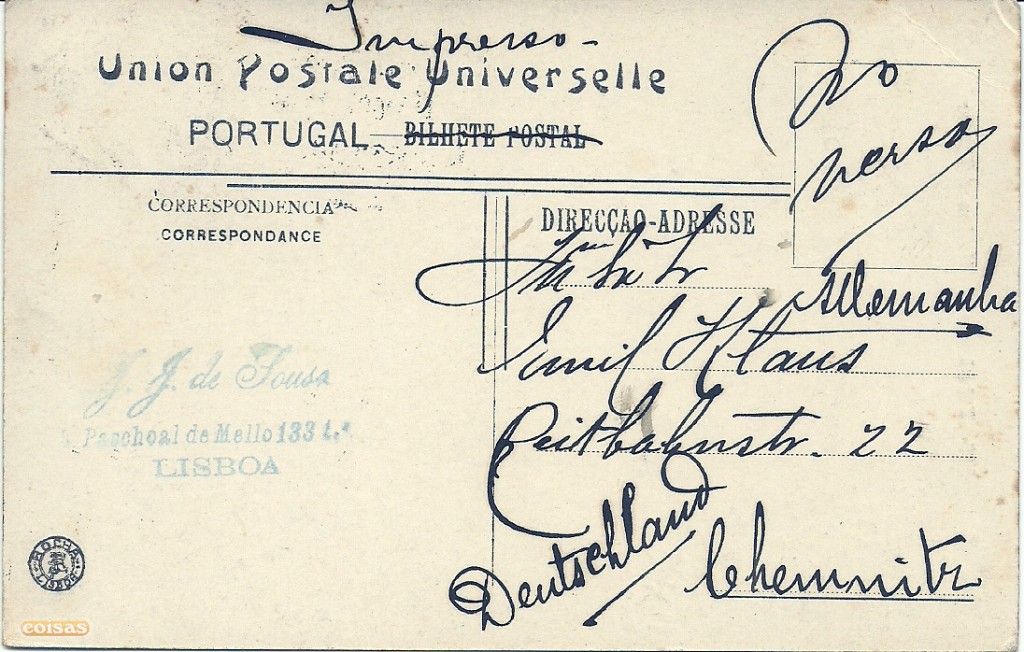 Impresso-
Union Postale Universelle
PORTUGAL BILHETE POSTAL
No
verso
CORRESPONDENCIA
CORRESPONDANCE
DIRECÇÃO-ADRESSE
Allemanha
Emil Klaus
J. J. de Sousa
Paschoal de Mello 133 1.º
LISBOA
Reitbahnstr. 22
Deutschland
Chemnitz
ROCHA
LISBOA
coisas